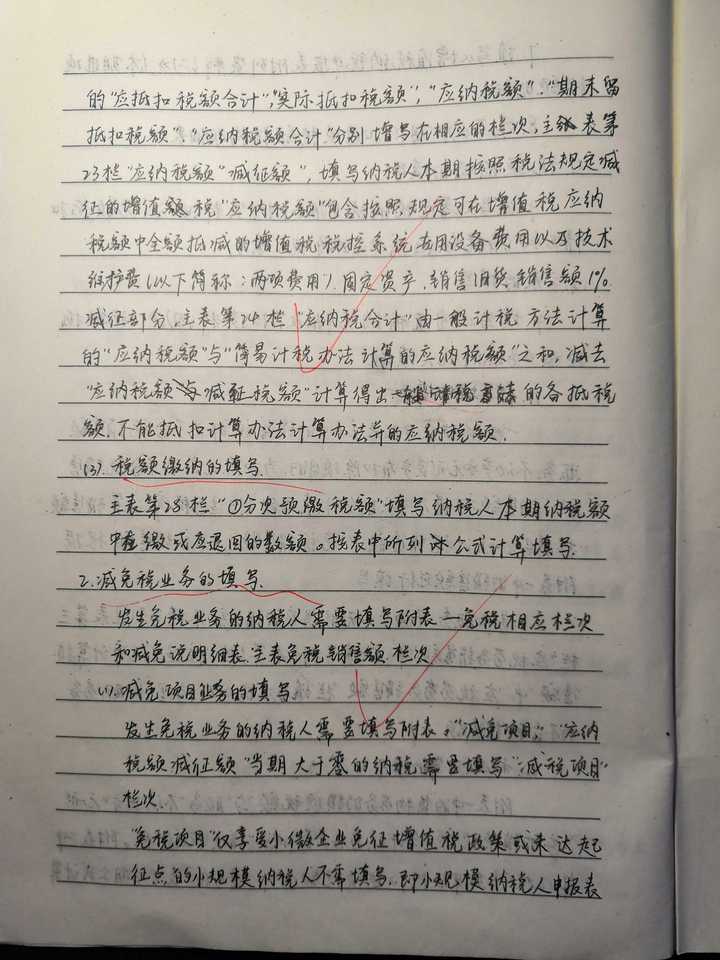 的"应抵扣税额合计","实际抵扣税额","应纳税额"."期末留
抵扣税额","应纳税额合计"分别填写在相应的栏次,主表第
23栏"应纳税额"减征额",填写纳税人本期按照税法规定减
征的增值税"应纳税额"包含按照规定可在增值税应纳
税额中全额抵减的增值税税控系统专用设备费用以及技术
维护费(以下简称:两项费用).固定资产.销售旧货销售额1%
减征部分.主表第24栏"应纳税合计"由一般计税方法计算
的"应纳税额"与"简易计税办法计算的应纳税额"之和,减去
"应纳税额减征税额"计算得出的各抵税
额.不能抵扣计算办法计算办法异的应纳税额.
(3).税额缴纳的填写.
主表第28栏"①分次预缴税额"填写纳税人本期纳税额
中应缴或应退回的数额。按表中所列公式计算填写.
2.减免税业务的填写.
发生免税业务的纳税人需要填写附表一免税相应栏次
和减免说明细表.主表免税销售额.栏次
(1).减免项目业务的填写
发生免税业务的纳税人需要填写附表。"减免项目;""应纳
税额减征额"当期大于零的纳税需要填写"减税项目"
栏次.
"免税项目"仅享受小微企业免征增值税政策或未达起
征点的小规模纳税人不需填写.即小规模纳税人申报表